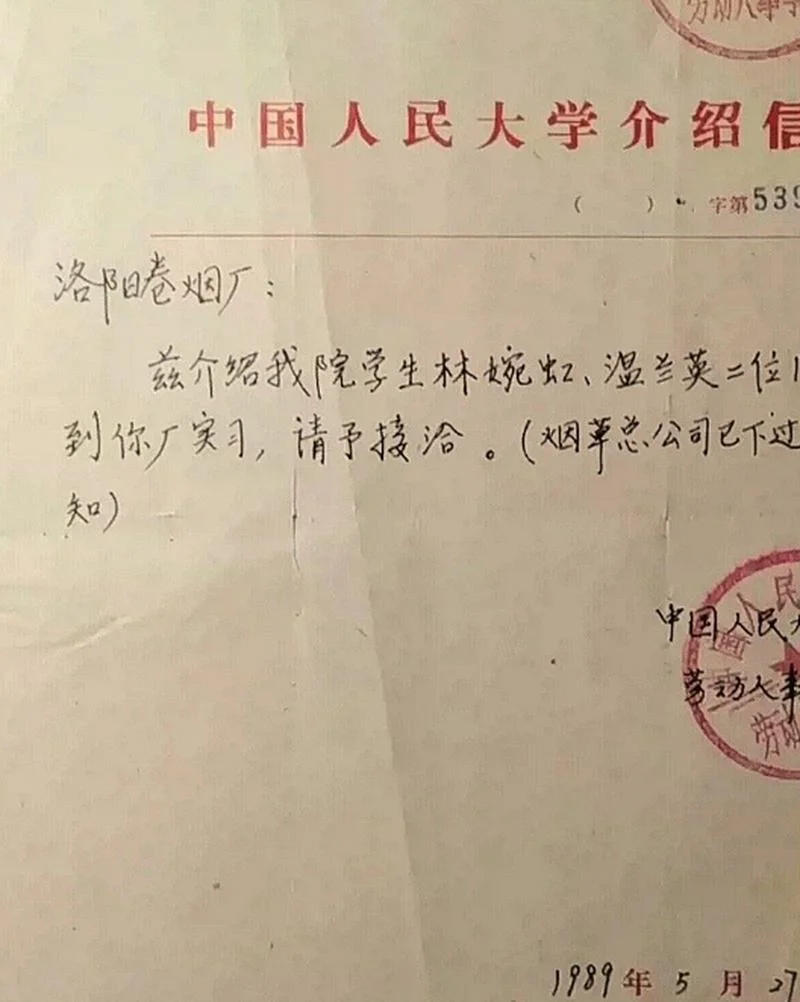 劳动人事学
中国人民大学介绍信
( ) 字第539
洛阳卷烟厂：
兹介绍我院学生林婉虹、温兰英二位
到你厂实习，请予接洽。(烟草总公司已下过
知)
中国人民大
劳动人事
人民
劳动
1989年5月27